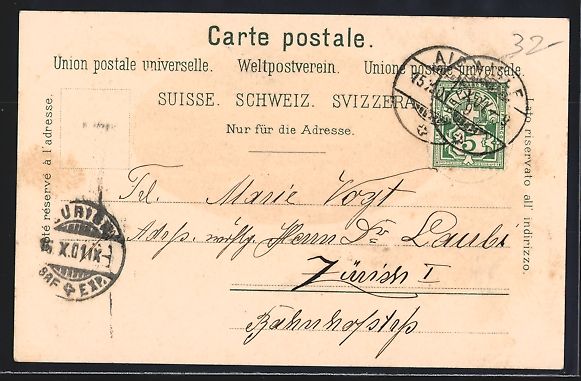 Carte postale.
32-
Union postale universelle. Weltpostverein. Unione postale universale
SUISSE. SCHWEIZ. SVIZZERA
Nur für die Adresse.
Côté réservé à l'adresse.
Lato riservato all' indirizzo.
5
Frl. Marie Vogt
Adrss. wohlg. Herrn Dr Laubi
Zürich I
Bahnhofstrss
X.01
BRF EXP.